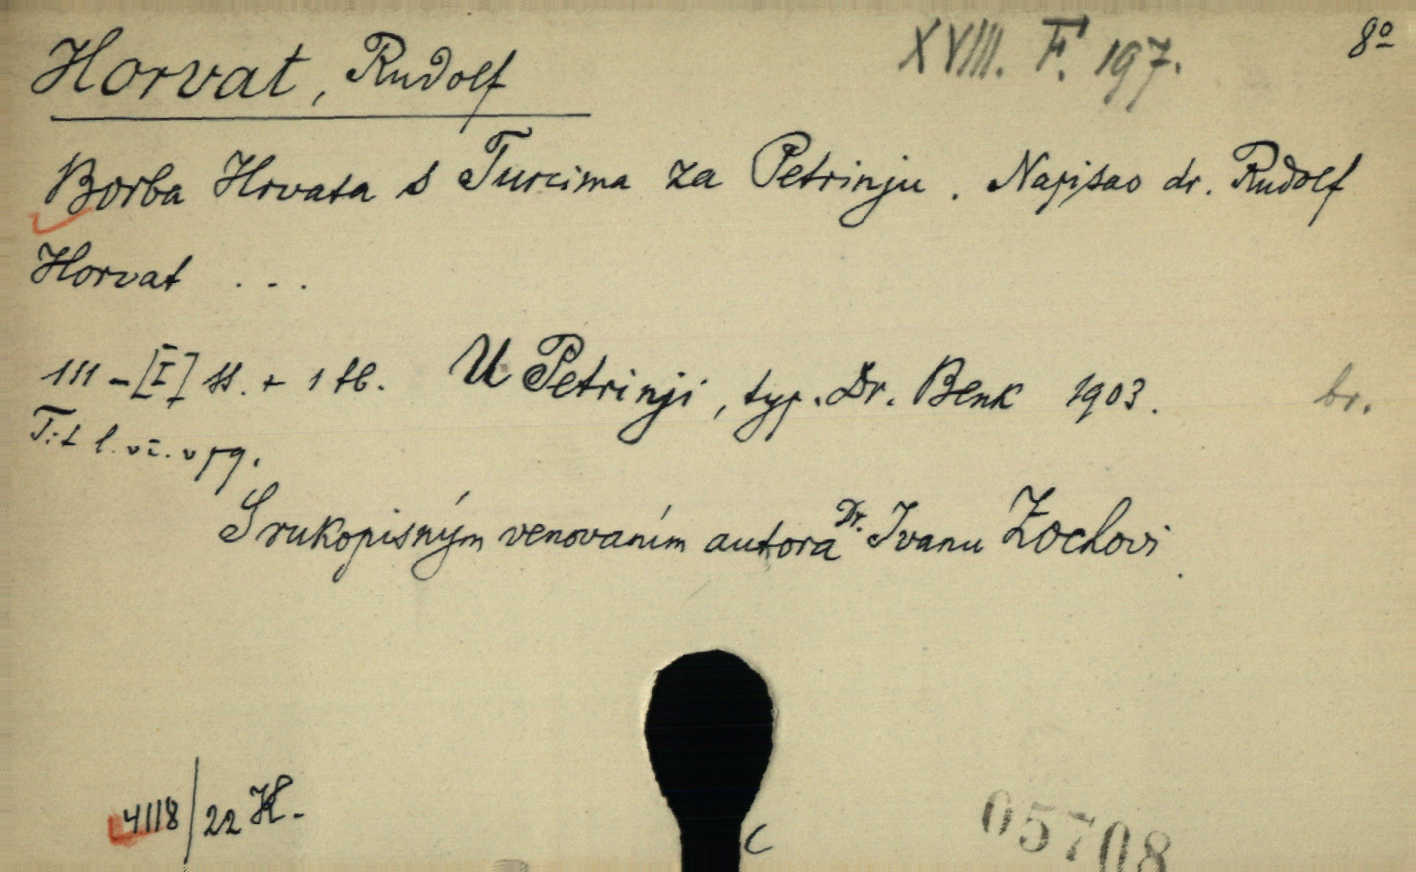 XVIII. F. 197.
8º
Horvat, Rudolf
Borba Hrvata s Turcima za Petrinju. Napisao dr. Rudolf
Horvat ...
111 - [I] ss. + 1 tb. U Petrinji, typ. Dr. Benk 1903. br.
Tit l.
S rukopisným venovaním autora Dr. Ivanu Zochovi.
4118/22 H.
C
05708